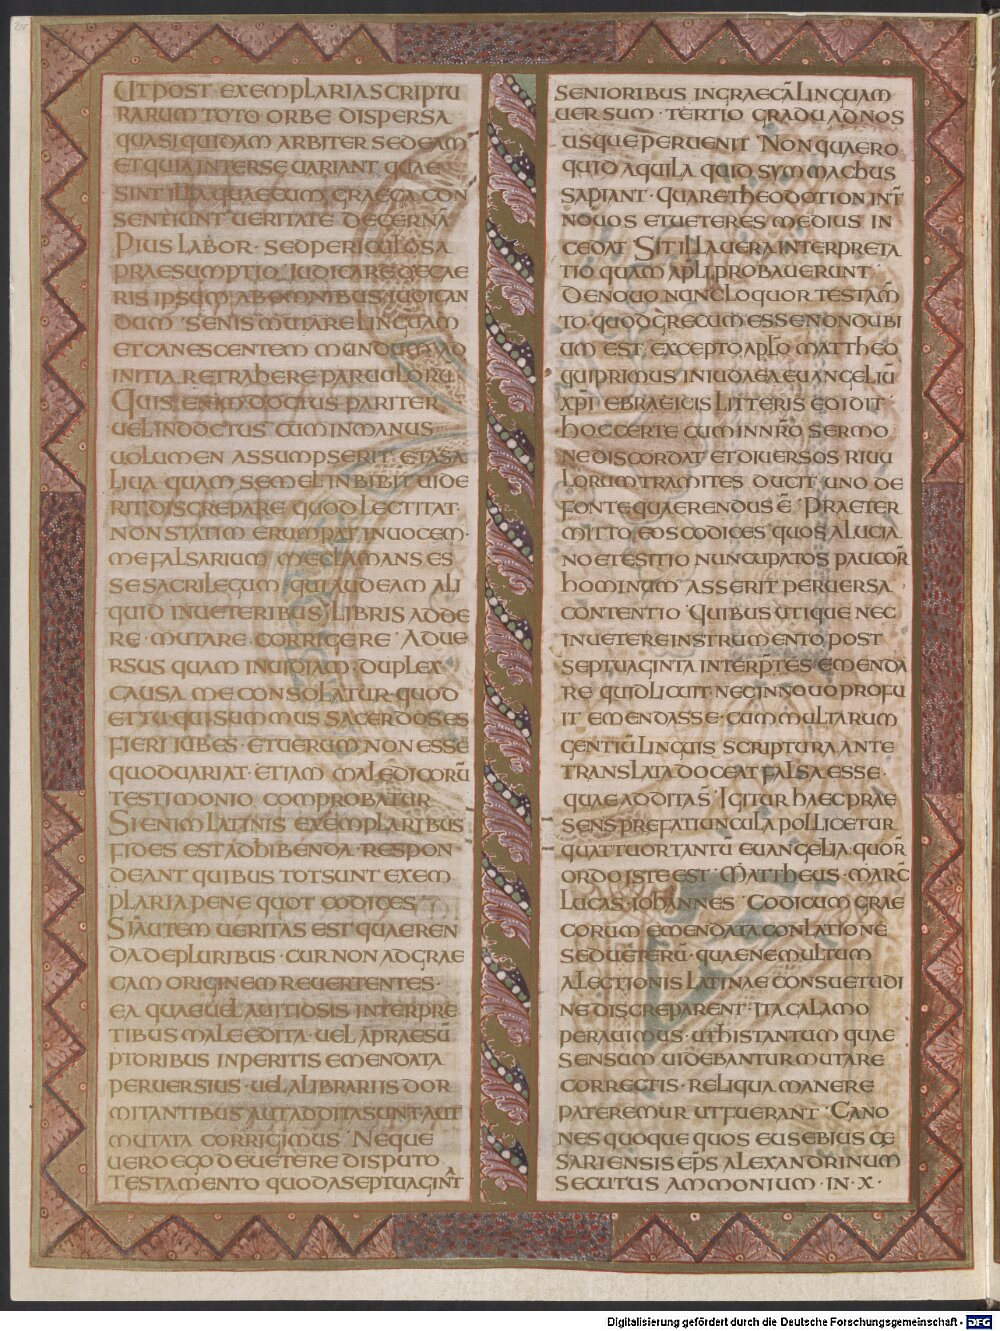 UT POST EXEMPLARIA SCRIPTU
RARUM TOTO ORBE DISPERSA
QUASI QUIDAM ARBITER SEDEAM
ET QUIA INTER SE VARIANT QUAE
SINT ILLA QUAE CUM GRAECA CON
SENTIUNT VERITATE DECERNĀ
PIUS LABOR · SED PERICULOSA
PRAESUMPTIO IUDICARE DE CAE
RIS IPSUM AB OMNIBUS IUDICAN
DUM · SENIS MUTARE LINGUAM
ET CANESCENTEM MUNDUM AD
INITIA RETRAHERE PARVULORŪ
QUIS ENIM DOCTUS PARITER
VEL INDOCTUS CUM IN MANUS
VOLUMEN ASSUMPSERIT · ET A SA
LIVA QUAM SEMEL INBIBIT VIDE
RIT DISCREPARE QUOD LECTITAT ·
NON STATIM ERUMPAT IN VOCEM ·
ME FALSARIUM ME CLAMANS ES
SE SACRILEGUM QUI AUDEAM ALI
QUID IN VETERIBUS LIBRIS ADDE
RE · MUTARE · CORRIGERE · ADVE
RSUS QUAM INVIDIAM · DUPLEX
CAUSA ME CONSOLATUR · QUOD
ET TU QUI SUMMUS SACERDOS ES
FIERI IUBES · ET VERUM NON ESSE
QUOD VARIAT · ETIAM MALEDICORŪ
TESTIMONIO COMPROBATUR
SI ENIM LATINIS EXEMPLARIBUS
FIDES EST ADHIBENDA · RESPON
DEANT QUIBUS TOT SUNT EXEM
PLARIA PENE QUOT CODICES ·
SI AUTEM VERITAS EST QUAEREN
DA DE PLURIBUS · CUR NON AD GRAE
CAM ORIGINEM REVERTENTES ·
EA QUAE VEL A VITIOSIS INTERPRE
TIBUS MALE EDITA · VEL A PRAESŪ
PTORIBUS INPERITIS EMENDATA
PERVERSIUS · VEL A LIBRARIIS DOR
MITANTIBUS AUT ADDITA SUNT · AUT
MUTATA CORRIGIMUS · NEQUE
VERO EGO DE VETERE DISPUTO
TESTAMENTO QUOD A SEPTUAGINTA
SENIORIBUS IN GRAECĀ LINGUAM
VERSUM · TERTIO GRADU AD NOS
USQUE PERVENIT · NON QUAERO
QUID AQUILA QUID SYMMACHUS
SAPIANT · QUARE THEODOTION INT̄
NOVOS ET VETERES MEDIUS IN
CEDAT · SIT ILLA VERA INTERPRETA
TIO QUAM APLI PROBAVERUNT ·
DE NOVO NUNC LOQUOR TESTAM̄
TO QUOD GRECUM ESSE NON DUBI
UM EST, EXCEPTO APLO MATTHEO
QUI PRIMUS IN IUDAEA EVANGELIŪ
XP̄I EBRAEICIS LITTERIS EDIDIT ·
HOC CERTE CUM IN NR̄O SERMO
NE DISCORDAT ET DIVERSOS RIVU
LORUM TRAMITES DUCIT UNO DE
FONTE QUAERENDUS Ē · PRAETER
MITTO EOS CODICES QUOS A LUCIA
NO ET ESITIO NUNCUPATOS PAUCOR̄
HOMINUM ASSERIT PERVERSA
CONTENTIO · QUIBUS UTIQUE NEC
IN VETERE INSTRUMENTO POST
SEPTUAGINTA INTERP̄TES EMENDA
RE QUID LICUIT · NEC IN NOVO PROFU
IT EMENDASSE · CUM MULTARUM
GENTIŪ LINGUIS SCRIPTURA ANTE
TRANSLATA DOCEAT FALSA ESSE ·
QUAE ADDITA S̄ · IGITUR HAEC PRAE
SENS PREFATIUNCULA POLLICETUR
QUATTUOR TANTŪ EVANGELIA QUOR̄
ORDO ISTE EST · MATTHEUS · MARC̄
LUCAS · IOHANNES · CODICUM GRAE
CORUM EMENDATA CONLATIONE
SED VETERŪ · QUAE NE MULTUM
A LECTIONIS LATINAE CONSUETUDI
NE DISCREPARENT · ITA CALAMO
PERAVIMUS · UT HIS TANTUM QUAE
SENSUM VIDEBANTUR MUTARE
CORRECTIS · RELIQUA MANERE
PATEREMUR UT FUERANT · CANO
NES QUOQUE QUOS EUSEBIUS CE
SARIENSIS EP̄S ALEXANDRINUM
SECUTUS AMMONIUM · IN · X ·
Digitalisierung gefördert durch die Deutsche Forschungsgemeinschaft - DFG